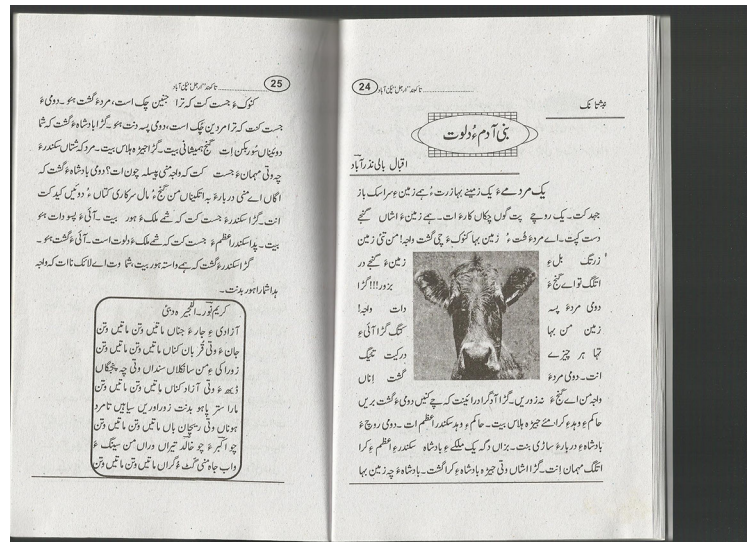 24
بنی آدم ءُ دلوت
اقبال بالی نذر آباد
یک مردمے ءَ یک زمینے بہا زرت ءُ ہے زمین ءِ سرا سک باز
جہد کت۔ یک روچے پت گوں چکاں کار ءَ ات۔ ہے زمین ءَ اشاں گنجے
دست کپت۔ اے مرد ءُ زمین بہا کنوک ءَ چی گشت واجہ! من تئی زمین
زرتگ بلءِ زمین ءَ گنجے در
اتلگ تو اے گنج ءَ بزور!!! گڑا
دومی مرد ءَ پسہ دات واجہ!
زمین من بہا کتگ گڑا آئی ءِ
تہا ہر چیزے درکیت تئیگ
انت۔ دومی مرد ءَ گشت اِناں
واجہ من اے گنج ءَ نہ زوریں۔ گڑا آ دگرا درائینت کہ چے کنیں دومی ءَ گشت بریں
حاکم ءِ دیم ءِ کرا مئے جیڑہ ہلاس بیت۔ حاکم ءِ دیم سکندر اعظم ات۔ دومی روچ ءَ
بادشاہ ءِ دربار ءَ سازی بنت۔ بزاں دگہ یک ملکے ءِ بادشاہ سکندر اعظم ءِ کرا
اتلگ مہمان اِنت۔ گڑا اشاں وتی جیڑہ بادشاہ ءِ کرا گشت۔ بادشاہ ءَ چہ زمین بہا
25
کنوک ءَ جست کت کہ ترا جنین چک است، مرد ءَ گشت ہو۔ دومی ءَ
جست کت کہ ترا مردین چک است، دومی پسہ دنت ہو۔ گڑا بادشاہ ءَ گشت کہ شما
دوئیناں سُور بکن اِت گنج ہمیشانی بیت۔ گڑا جیڑہ ہلاس بیت۔ مرد کہ شتاں سکندر ءَ
چہ وتی مہمان ءَ جست کت کہ واجہ منی پیسلہ چون ات؟ دومی بادشاہ ءَ گشت کہ
اگاں اے منی دربار ءَ بہ اتکیناں من گنج ءُ مال سرکاری کتاں ءُ دوئیں کید کت
انت۔ گڑا سکندر ءَ جست کت کہ شے ملک ءَ ہور بیت۔ آئی ءَ پسو دات ہو
بیت۔ پدا سکندر اعظم ءَ جست کت کہ شے ملک ءَ دلوت است۔ آئی ءَ گشت ہو۔
گڑا سکندر ءَ گشت کہ ہے واستہ ہور بیت، شما وت اے لائک نہ ات کہ واجہ
ہدا شمارا ہور بدنت۔
کریم نور۔ الفجیرہ دبئی
آزادی ءِ چار ءَ جناں ماتیں وتن ماتیں وتن
جان ءَ وتی قربان کناں ماتیں وتن ماتیں وتن
زوراکی ءِ من سانکلاں سنداں وتی چہ پنجگاں
ڈیہہ ءَ وتی آزاد کناں ماتیں وتن ماتیں وتن
مارا ستر پاہو بدنت زوراوریں سیاہیں نامرد
ہوناں وتی ریچاں ماتیں وتن ماتیں وتن
چو اکبر ءَ چو خالد تیراں وراں من سینگ ءَ
واب جاہ منی ءُ گراں ماتیں وتن ماتیں وتن